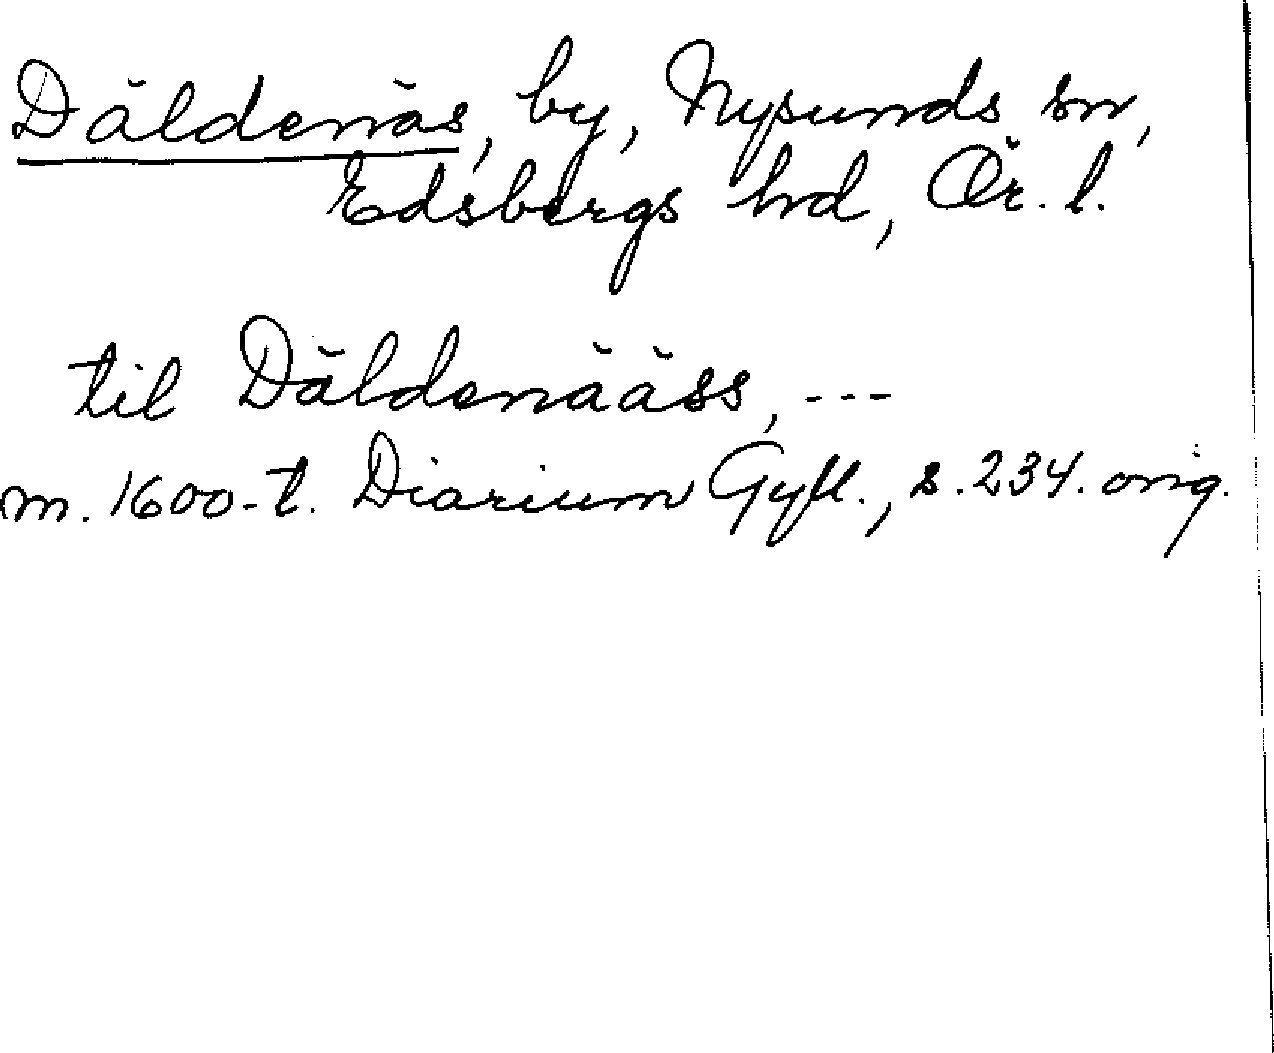 Däldenäs, by, Nysunds sn,
Edsbergs hd, Ör. l.
til Däldenääss, ---
m. 1600-t. Diarium Gyll., s. 234. orig.